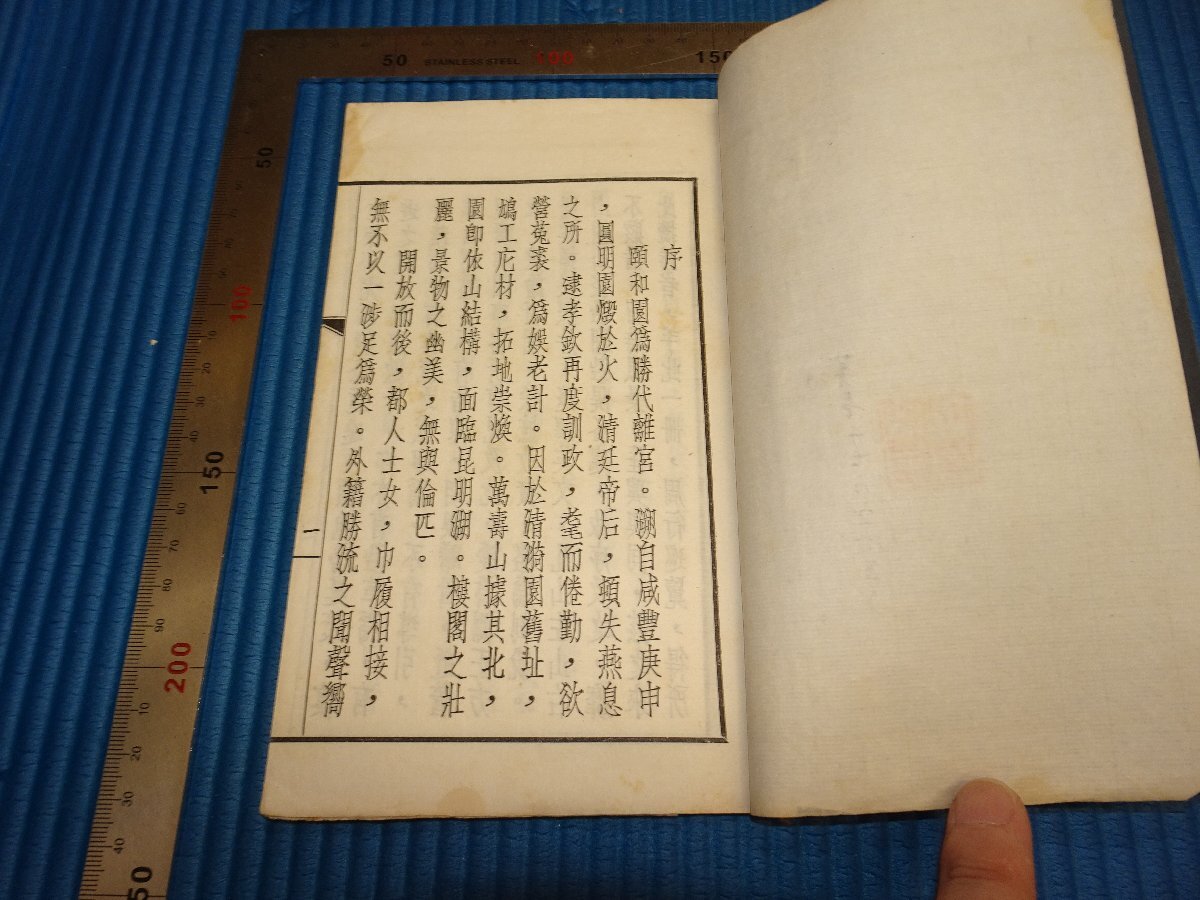 序
頤和園爲勝代離宮。溯自咸豐庚申
，圓明園燬於火，清廷帝后，頓失燕息
之所。逮孝欽再度訓政，耄而倦勤，欲
營菟裘，爲娛老計。因於清漪園舊址，
鳩工庀材，拓地崇煥。萬壽山據其北，
園卽依山結構，面臨昆明湖。樓閣之壯
麗，景物之幽美，無與倫匹。
開放而後，都人士女，巾履相接，
無不以一涉足爲榮。外籍勝流之聞聲嚮
一
50
STAINLESS STEEL
100
150
50
100
150
200